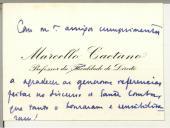 Com m.tos amigos cumprimentos
Marcello Caetano
Professor da Faculdade de Direito
a agradecer as generosas referencias
feitas no discurso a Santa Comba,
que tanto o honraram e sensibiliza
ram!